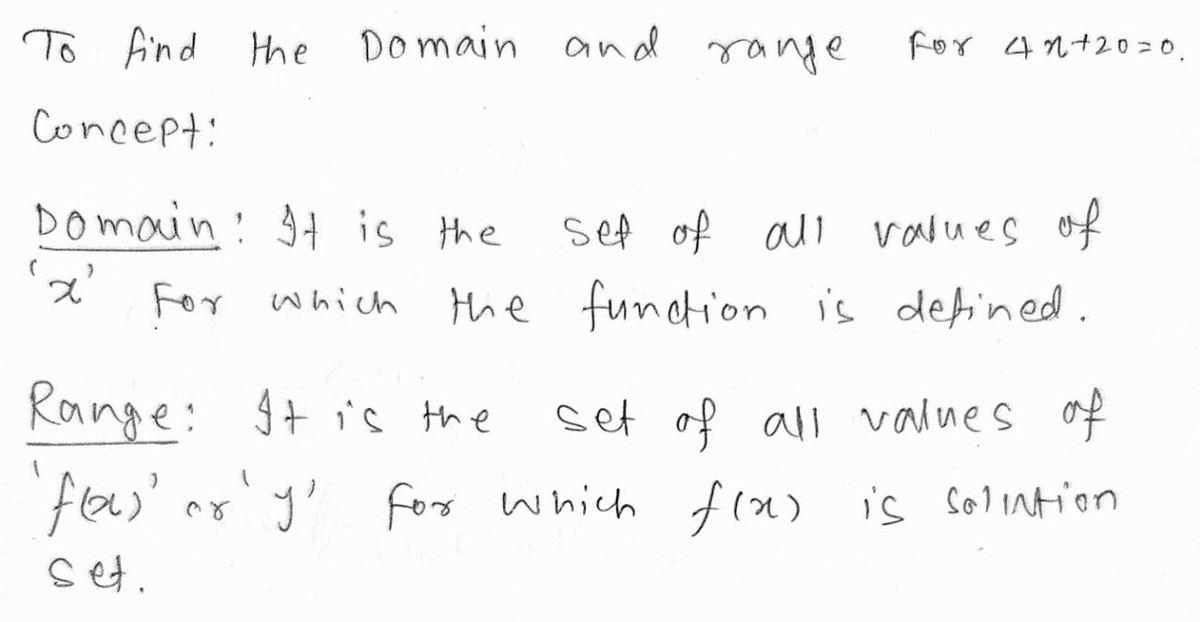 To find the Domain and range for 4x+20=0.
Concept:
Domain: It is the set of all values of
'x' For which the function is defined.
Range: It is the set of all values of
'f(x)' or 'y' for which f(x) is solution
set.